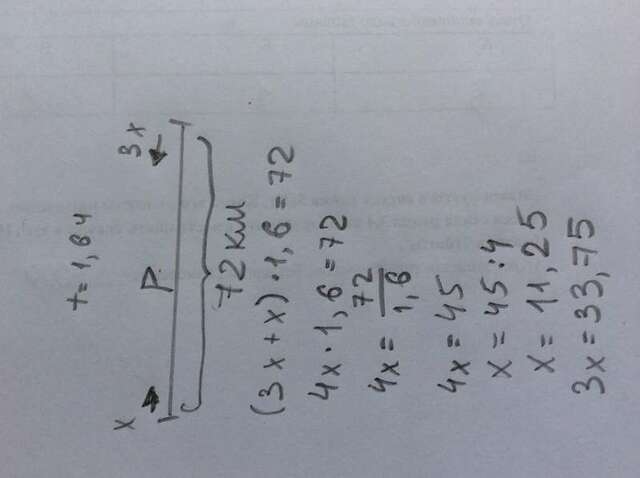 t = 1,6 ч
x 3x
P
72 км
(3x + x) · 1,6 = 72
4x · 1,6 = 72
4x = 72/1,6
4x = 45
x = 45 : 4
x = 11,25
3x = 33,75